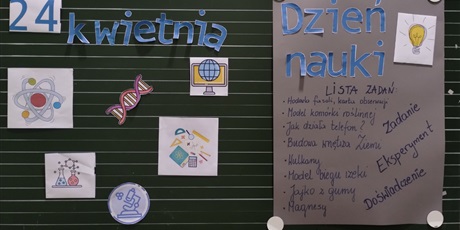 24 kwietnia
Dzień
nauki
LISTA ZADAŃ
- Hodowla fasoli, karta obserwacji
- Model komórki roślinnej
- Jak działa telefon?
- Budowa wnętrza Ziemi
- Wulkany
- Model biegu rzeki
- Jajko z gumy
- Magnesy
Zadanie
Eksperyment
Doświadczenie